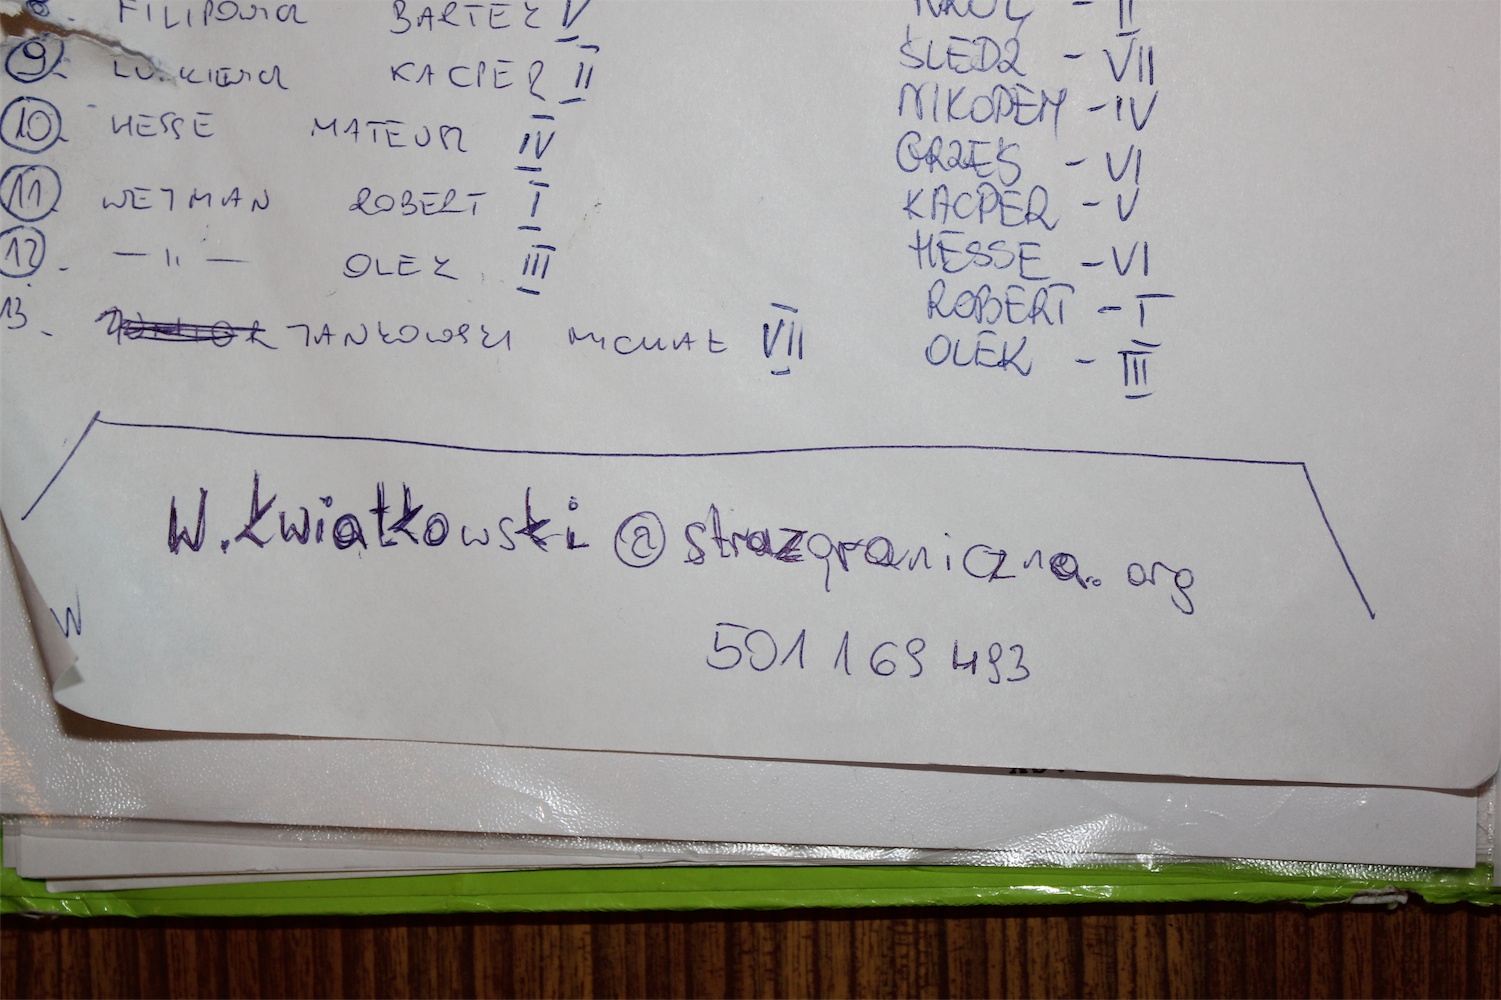 8. FILIPOWICZ BARTEK V
9. KACPER II
10. HESSE MATEUSZ IV
11. WEJMAN ROBERT I
12. — " — OLEK III
13. JANKOWSKI MICHAŁ VII
KRÓL - II
ŚLEDZ - VII
NIKODEM - IV
GRZEŚ - VI
KACPER - V
HESSE - VI
ROBERT - I
OLEK - III
W.Kwiatkowski@strazgraniczna.org
501 169 493
W